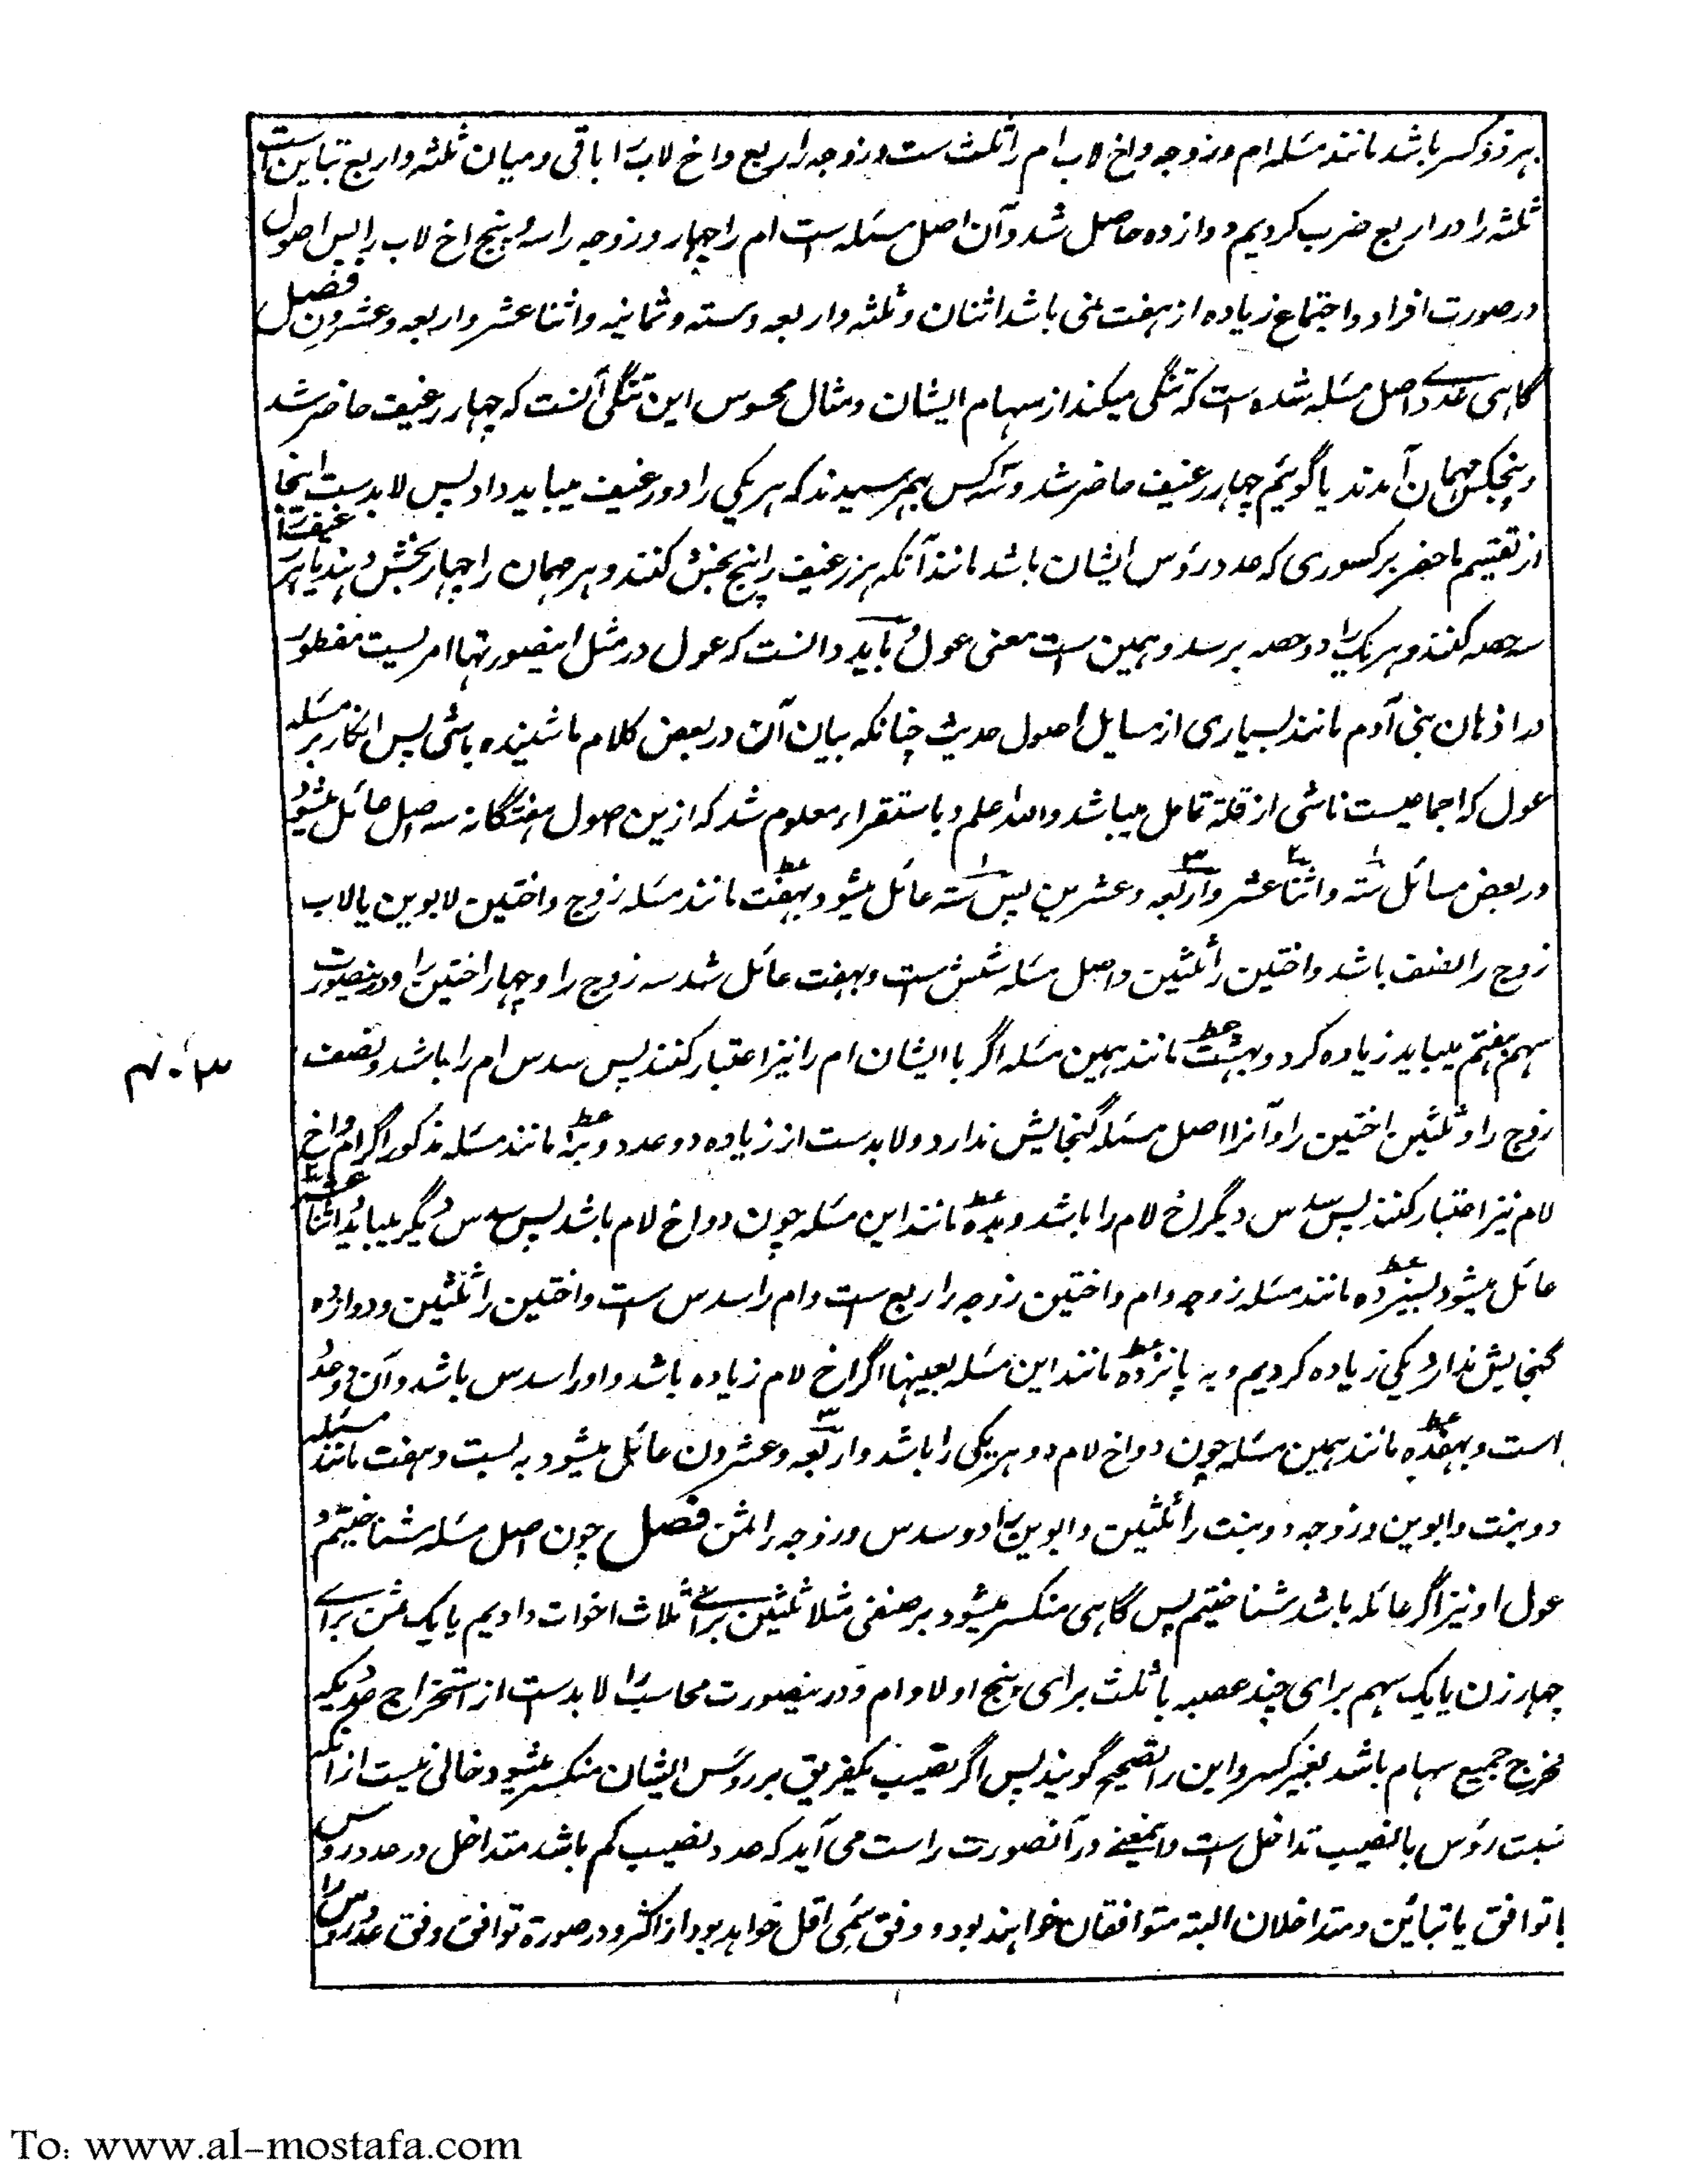 هر دو کسر باشد مانند مسئله ام و زوجه و اخ لاب ام را ثلث ست و زوجه را ربع و اخ لاب را باقی و میان ثلثه و اربع تباین است
ثلثه را در اربع ضرب کردیم دوازده حاصل شد و آن اصل مسئله است ام را چهار و زوجه را سه و پنج اخ لاب را پس اصول
در صورت افراد و اجتماع زیاده از هفت نمی باشد اثنان و ثلثه و اربعه و سته و ثمانیه و اثنا عشر و اربعه و عشرون فصل
گاهی عددے اصل مسئله شده است که تنگی میکند از سهام ایشان و مثال محسوس این تنگی آنست که چهار رغیف حاضر شد
و پنجکس مهمان آمدند یا گوئیم چهار رغیف حاضر شد و سه کس بهم رسیدند که هر یکی را دو رغیف میباید داد پس لابد ست اینجا
از تقسیم ماحضر بر کسوری که عدد رؤس ایشان باشد مانند آنکه هر رغیف را پنج بخش کنند و هر مهمان را چهار بخش دهند یا هر رغیف را
سه حصه کنند و هر یک را دو حصه برسد و همین ست معنی عول و باید دانست که عول در مثل اینصورتها امریست مفطور
در اذهان بنی آدم مانند بسیاری از مسایل اصول حدیث چنانکه بیان آن در بعض کلام ما شنیده باشی پس انکار بر مسئله
عول که اجماعیست ناشی از قلة تامل میباشد والله اعلم و باستقراء معلوم شد که ازین اصول هفتگانه سه اصل عائل میشود
در بعض مسائل سته و اثنا عشر و اربعه و عشرین پس سته عائل میشود بهفت مانند مسئله زوج و اختین لابوین یا لاب
زوج را نصف باشد و اختین را ثلثین و اصل مسئله شش ست و بهفت عائل شد سه زوج را و چهار اختین را و درینصورت
سهم هفتم میباید زیاده کرد و بهشت مانند همین مسئله اگر با ایشان ام را نیز اعتبار کنند پس سدس ام را باشد و نصف
زوج را و ثلثین اختین را و آنرا اصل مسئله گنجایش ندارد و لابدست از زیاده دو عدد و بنه مانند مسئله مذکور اگر ام و اخ
لام نیز اعتبار کنند پس سدس دیگر اخ لام را باشد و بده مانند این مسئله چون دو اخ لام باشد پس سدس دیگر میباید و اثنا عشر
عائل میشود بسیزده مانند مسئله زوجه و ام و اختین زوجه را ربع ست و ام را سدس ست و اختین را ثلثین و دوازده
گنجایش ندارد یکی زیاده کردیم و به پانزده مانند این مسئله بعینها اگر اخ لام زیاده باشد و او را سدس باشد و آن دو عدد
است و بهفده مانند همین مسئله چون دو اخ لام دو هر یکی را باشد و اربعه و عشرون عائل میشود به بست و هفت مانند مسئله
دو بنت و ابوین و زوجه دو بنت را ثلثین و ابوین را دو سدس و زوجه را ثمن فصل چون اصل مسئله شناختیم و
عول او نیز اگر عائله باشد شناختیم پس گاهی منکسر میشود بر صنفی مثلا ثلثین برائے ثلاث اخوات دادیم یا یک ثمن برائے
چهار زن یا یک سهم برای چند عصبه یا ثلث برای پنج اولاد ام و درینصورت محاسب را لابدست از استخراج عددیکه
مخرج جمیع سهام باشد بغیر کسر و این را تصحیح گویند پس اگر نصیب یکفریق بر رؤس ایشان منکسر میشود خالی نیست از آنکه
نسبت رؤس با نصیب تداخل ست و اینمعنے در آنصورت راست می آید که عدد نصیب کم باشد متداخل در عدد رؤس
یا توافق یا تباین و متداخلان البته متوافقان خواهند بود و وفق سمی اقل خواهد بود از اکثر و در صورة توافق وفق عدد رؤس را
۳۰۴
To: www.al-mostafa.com